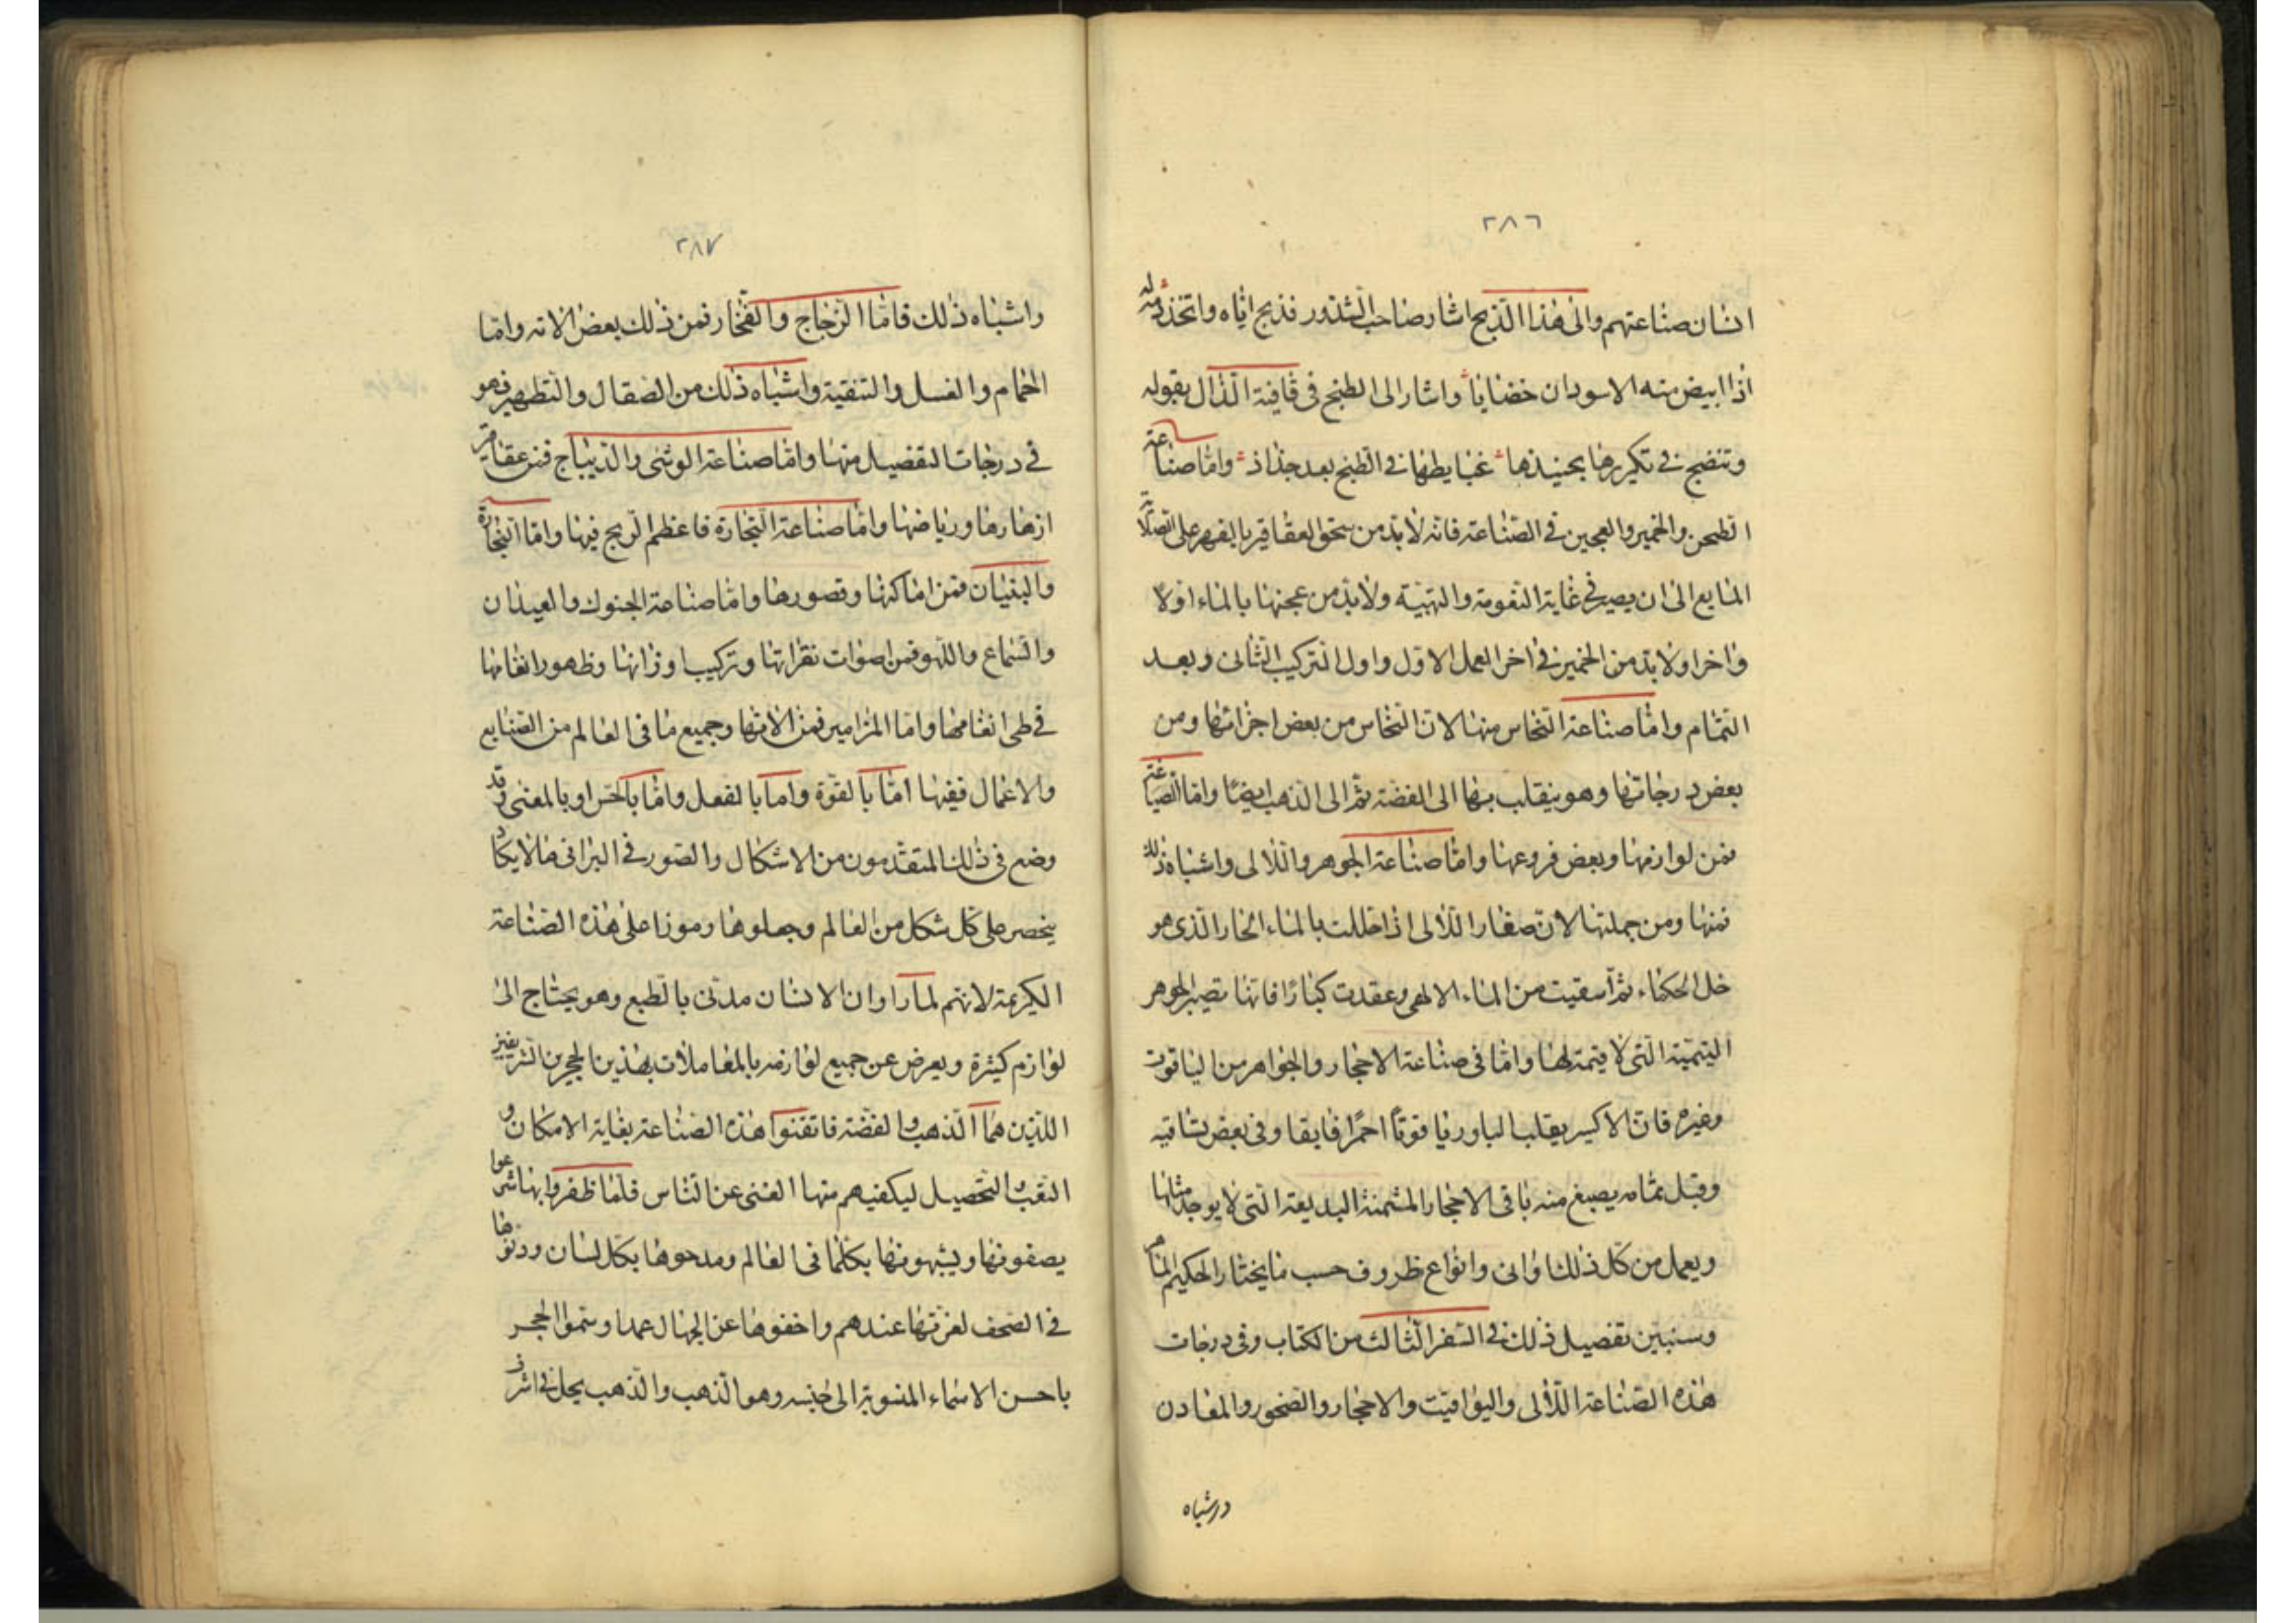 ٢٨٦
انسان صناعتهم والى هذا الذبح اشار صاحب الشذور فذبح اياه واتخذ دمه له
اذا ابيض منه الاسودان خضابا واشار الى الطبخ فى قافية الذال بقوله
وتنضج فى تكريرها بحنيذها غبايطها فى الطبخ بعد جذاذ واما صناعة
الطحن والخمير والعجين فى الصناعة فانه لا بد من سحق العقاقير بالفهر على الصلاية
المانع الى ان يصير فى غاية النعومة والتهيئة ولا بد من عجنها بالماء اولا
واخرا ولا بد من الخمير فى اخر العمل الاول واول التركيب الثانى وبعد
التمام واما صناعة النحاس منها لان النحاس من بعض اجزائها ومن
بعض درجاتها وهو ينقلب بها الى الفضة ثم الى الذهب ايضا واما الصياغة
فمن لوازمها وبعض فروعها واما صناعة الجوهر واللالى واشباه ذلك
فمنها ومن جملتها لان صغار اللالى اذا حللت بالماء الحار الذى هو
خل الحكماء ثم اسقيت من الماء الالهى وعقدت كبارا فانها تصير الجوهر
اليتيمة التى لا قيمة لها واما فى صناعة الاحجار والجواهر من الياقوت
وغيره فان الاكسير يقلب البلور ياقوتا احمرا فايقا وفى بعض تساقيه
وقبل تمامه يصبغ منه باقى الاحجار المثمنة البديعة التى لا يوجد مثلها
ويعمل من كل ذلك اوانى وانواع ظروف حسب ما يختار الحكيم الماهر
وسنبين تفصيل ذلك فى السفر الثالث من الكتاب وفى درجات
هذه الصناعة اللالى واليواقيت والاحجار والصخور والمعادن
واشباه
٢٨٧
واشباه ذلك فاما الزجاج والفخار فمن ذلك بعض الاته واما
الحمام والغسل والتنقية واشباه ذلك من الصقال والتطهير فهو
فى درجات التفصيل منها واما صناعة الوشى والديباج فمن عقاقير
ازهارها ورياضها واما صناعة التجارة فاعظم الربح فيها واما النجارة
والبنيان فمن اماكنها وقصورها واما صناعة الجنوك والعيدان
والسماع واللهو فمن اصوات نقراتها وتركيب اوزانها وظهور انغامها
فى طى انغامها واما المزامير فمن الاتها وجميع ما فى العالم من الصنايع
والاعمال ففيها اما بالقوة واما بالفعل واما بالحس او بالمعنى وقد
وضع فى ذلك المتقدمون من الاشكال والصور فى البرانى ما لا يكاد
ينحصر على كل شكل من العالم وجعلوها رموزا على هذه الصناعة
الكريمة لانهم لما راوا ان الانسان مدنى بالطبع وهو يحتاج الى
لوازم كثيرة ويعرض عن جميع لوازمه بالمعاملات بهذين الحجرين الشريفين
اللذين هما الذهب والفضة فاتقنوا هذه الصناعة بغاية الامكان و
التعب والتحصيل ليكفيهم منها الغنى عن الناس فلما ظفروا بها شرعوا
يصفونها ويشبهونها بكلما فى العالم ومدحوها بكل لسان ودونوها
فى الصحف لعزتها عندهم واخفوها عن الجهال عمدا وسموا الحجر
باحسن الاسماء المنسوبة الى جنسه وهو الذهب والذهب يحل فى اشرف